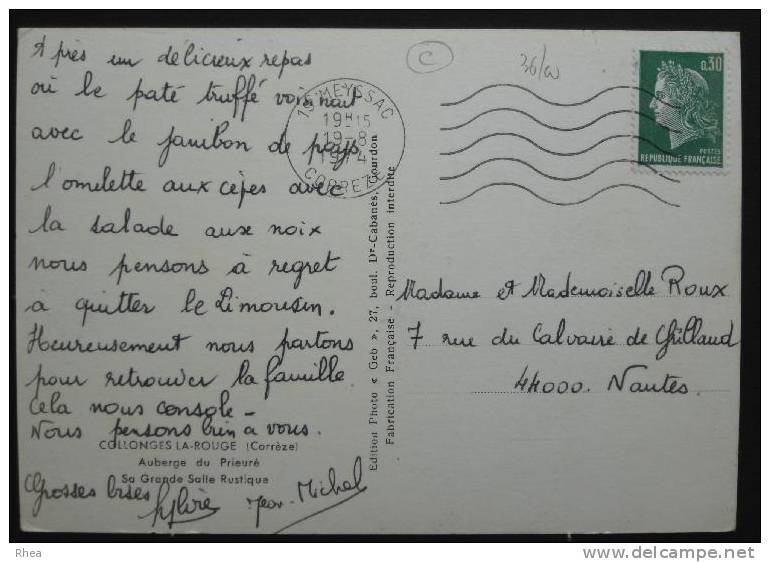 Après un délicieux repas
où le paté truffé voisinait
avec le jambon de pays
l'omelette aux cèpes avec
la salade aux noix
nous pensons à regret
à quitter le Limousin.
Heureusement nous partons
pour retrouver la famille
Cela nous console -
Nous pensons bien à vous.
COLLONGES-LA-ROUGE (Corrèze)
Auberge du Prieuré
Sa Grande Salle Rustique
Grosses bises Sylvie Jean-Michel
Edition Photo « Geb », 27, boul. Dr-Cabanès, Gourdon
Fabrication Française - Reproduction interdite
C
19 MEYSSAC
19H15
19-8
CORREZE
0,30
POSTES
REPUBLIQUE FRANÇAISE
Madame et Mademoiselle Roux
7 rue du Calvaire de Grillaud
44000. Nantes.
Rhea
delcampe.net